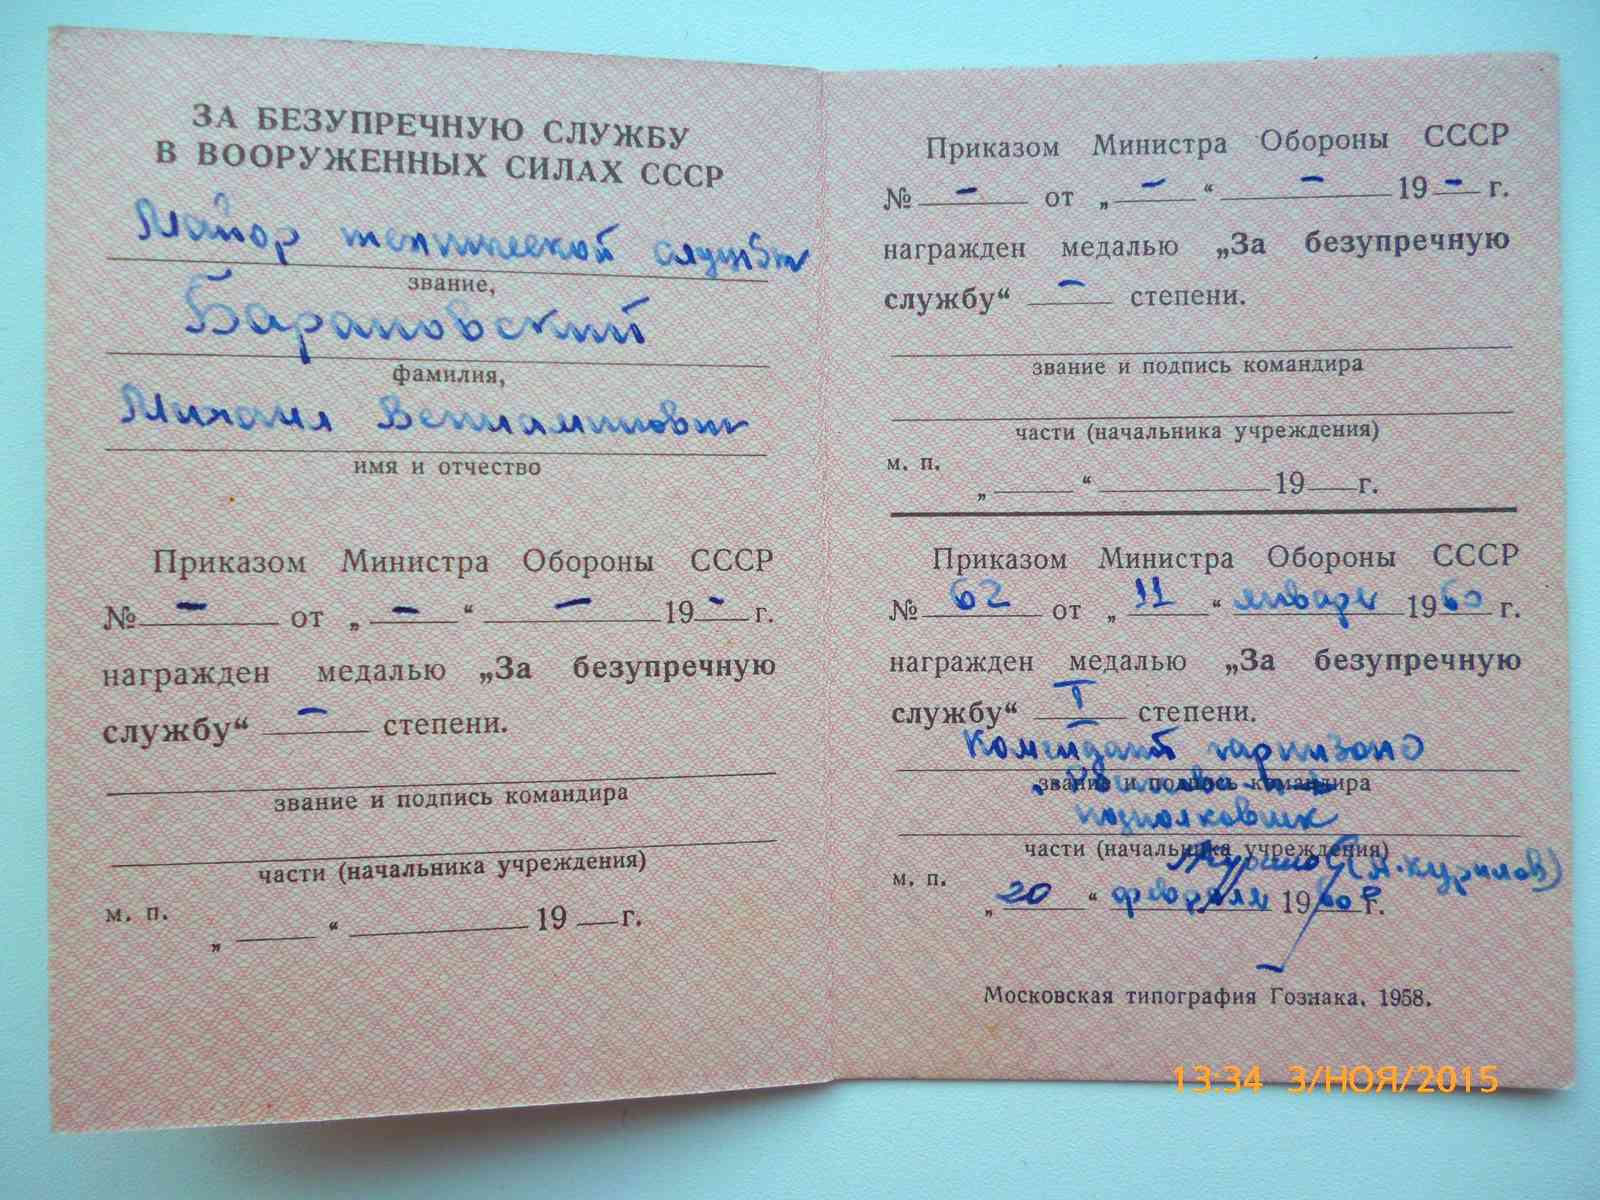 ЗА БЕЗУПРЕЧНУЮ СЛУЖБУ
В ВООРУЖЕННЫХ СИЛАХ СССР
Майор технической службы
звание,
Барановский
фамилия,
Михаил Вениаминович
имя и отчество
Приказом Министра Обороны СССР
№ – от „ – “ – 19 – г.
награжден медалью „За безупречную
службу“ – степени.
звание и подпись командира
части (начальника учреждения)
м. п.
„ “ 19 г.
Приказом Министра Обороны СССР
№ – от „ – “ – 19 – г.
награжден медалью „За безупречную
службу“ – степени.
звание и подпись командира
части (начальника учреждения)
м. п.
„ “ 19 г.
Приказом Министра Обороны СССР
№ 62 от „ 11 “ января 1960 г.
награжден медалью „За безупречную
службу“ I степени.
Комендант гарнизона
звание и подпись командира
подполковник
части (начальника учреждения)
(А. Курилов)
м. п.
„ 20 “ февраля 1960 г.
Московская типография Гознака. 1958.
13:34 3/НОЯ/2015